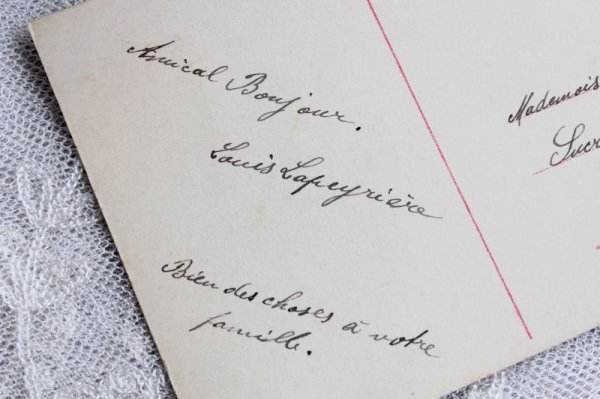 Amical Bonjour.
Louis Lapeyrière
Bien des choses à votre
famille.
Mademois
Sucr